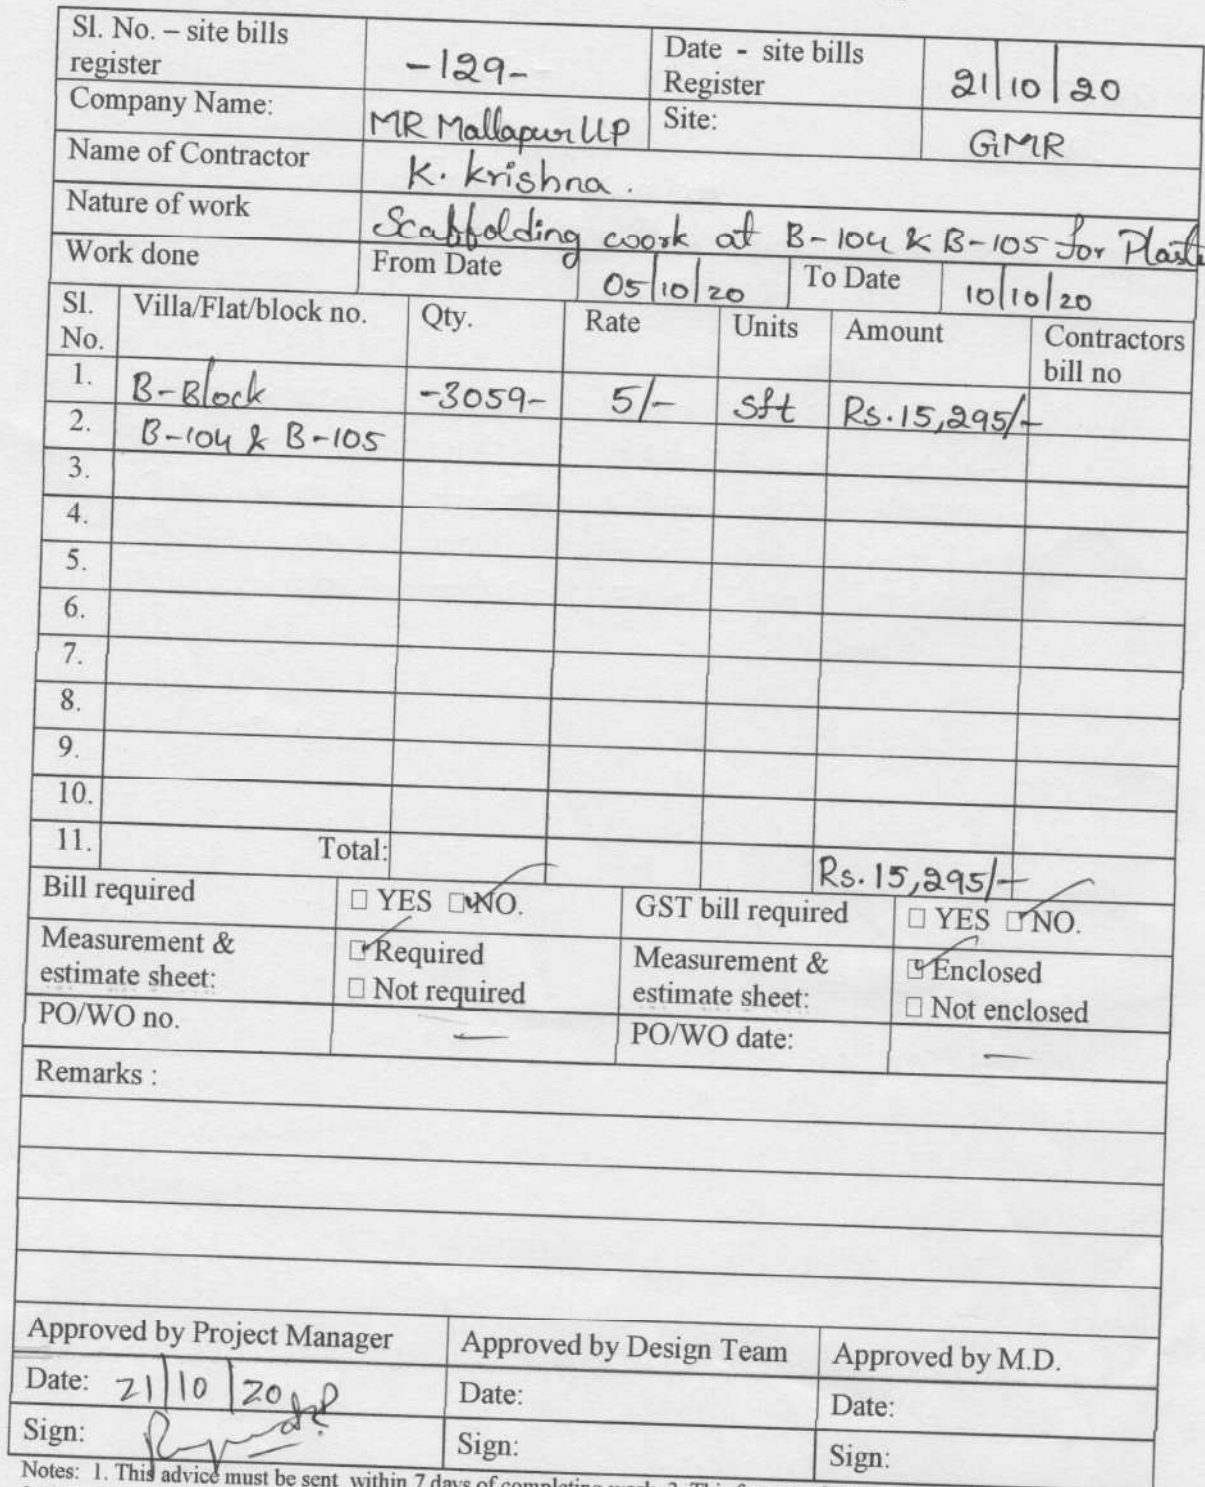 Sl. No. – site bills register -129- Date - site bills Register 21/10/20
Company Name: MR Mallapur LLP Site: GMR
Name of Contractor K. krishna.
Nature of work Scaffolding work at B-104 & B-105 for
Work done From Date 05/10/20 To Date 10/10/20
Sl. No. Villa/Flat/block no. Qty. Rate Units Amount Contractors bill no
1. B-Block -3059- 5/- sft Rs.15,295/-
2. B-104 & B-105
3.
4.
5.
6.
7.
8.
9.
10.
11. Total: Rs.15,295/-
Bill required □ YES □ NO. GST bill required □ YES □ NO.
Measurement & estimate sheet: □ Required □ Not required Measurement & estimate sheet: □ Enclosed □ Not enclosed
PO/WO no. — PO/WO date: —
Remarks :
Approved by Project Manager Approved by Design Team Approved by M.D.
Date: 21/10/20 Date: Date:
Sign: Sign: Sign:
Notes: 1. This advice must be sent within 7 days of completing